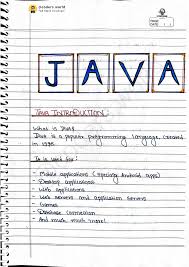 JAVA
JAVA INTRODUCTION:
What is Java?
Java is a popular programming language, created
in 1995.
It is used for:
- Mobile applications (specially Android apps)
- Desktop applications
- Web applications
- Web servers and application servers
- Games
- Database connection
- And much, much more!